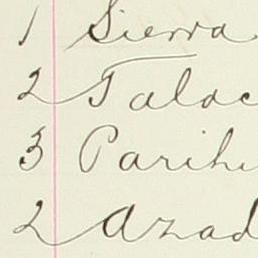 1 Sierra
2 Talac
3 Parihu
2 Azad